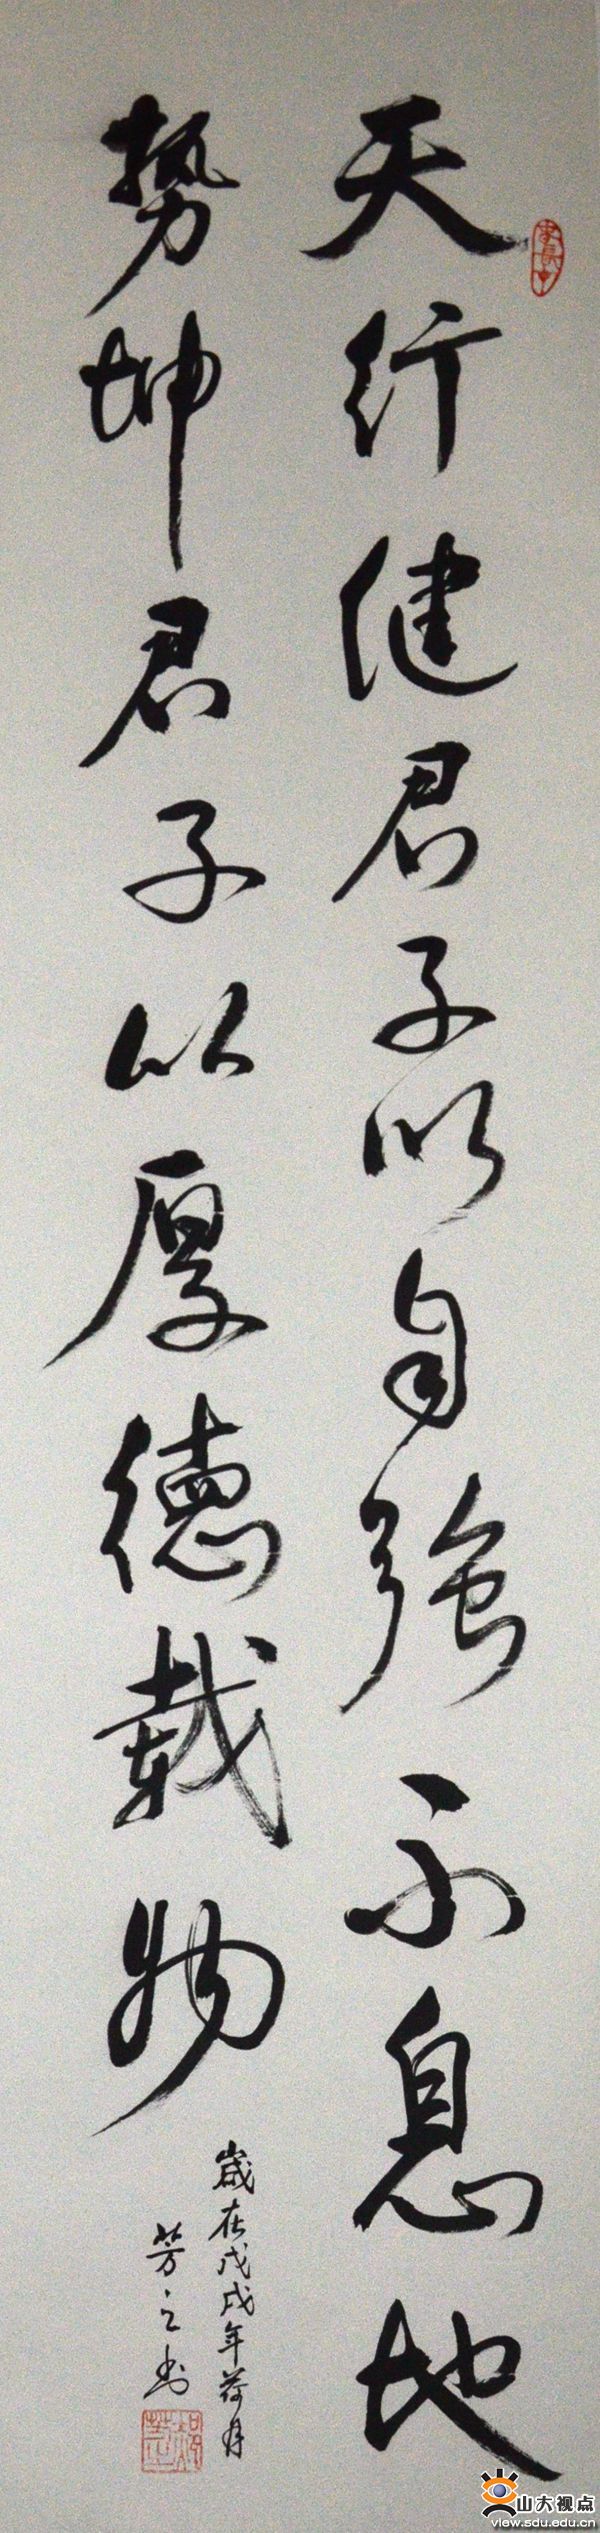 天行健君子以自強不息地
势坤君子以厚德载物
歲在戊戌年荷月
芳之书
山大视点
view.sdu.edu.cn